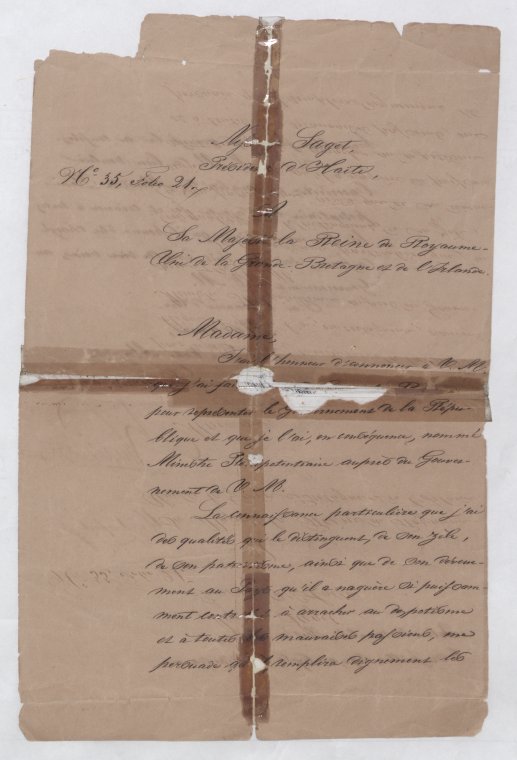 Saget,
Président d'Haïti,
N° 35, Folio 21.
A
Sa Majesté la Reine du Royaume-
Uni de la Grande-Bretagne et de l'Irlande
Madame,
J'ai l'honneur d'annoncer à V. M.
que j'ai fait
pour représenter le gouvernement de la Répu-
blique et que je l'ai, en conséquence, nommé
Ministre Plénipotentiaire auprès du Gouver-
nement de V. M.
La connaissance particulière que j'ai
des qualités qui le distinguent, de son zèle,
de son patriotisme, ainsi que de son dévoue-
ment au Pays qu'il a naguère si puissam-
ment contribué à arracher au despotisme
et à toutes les mauvaises passions, me
persuade qu'il remplira dignement les